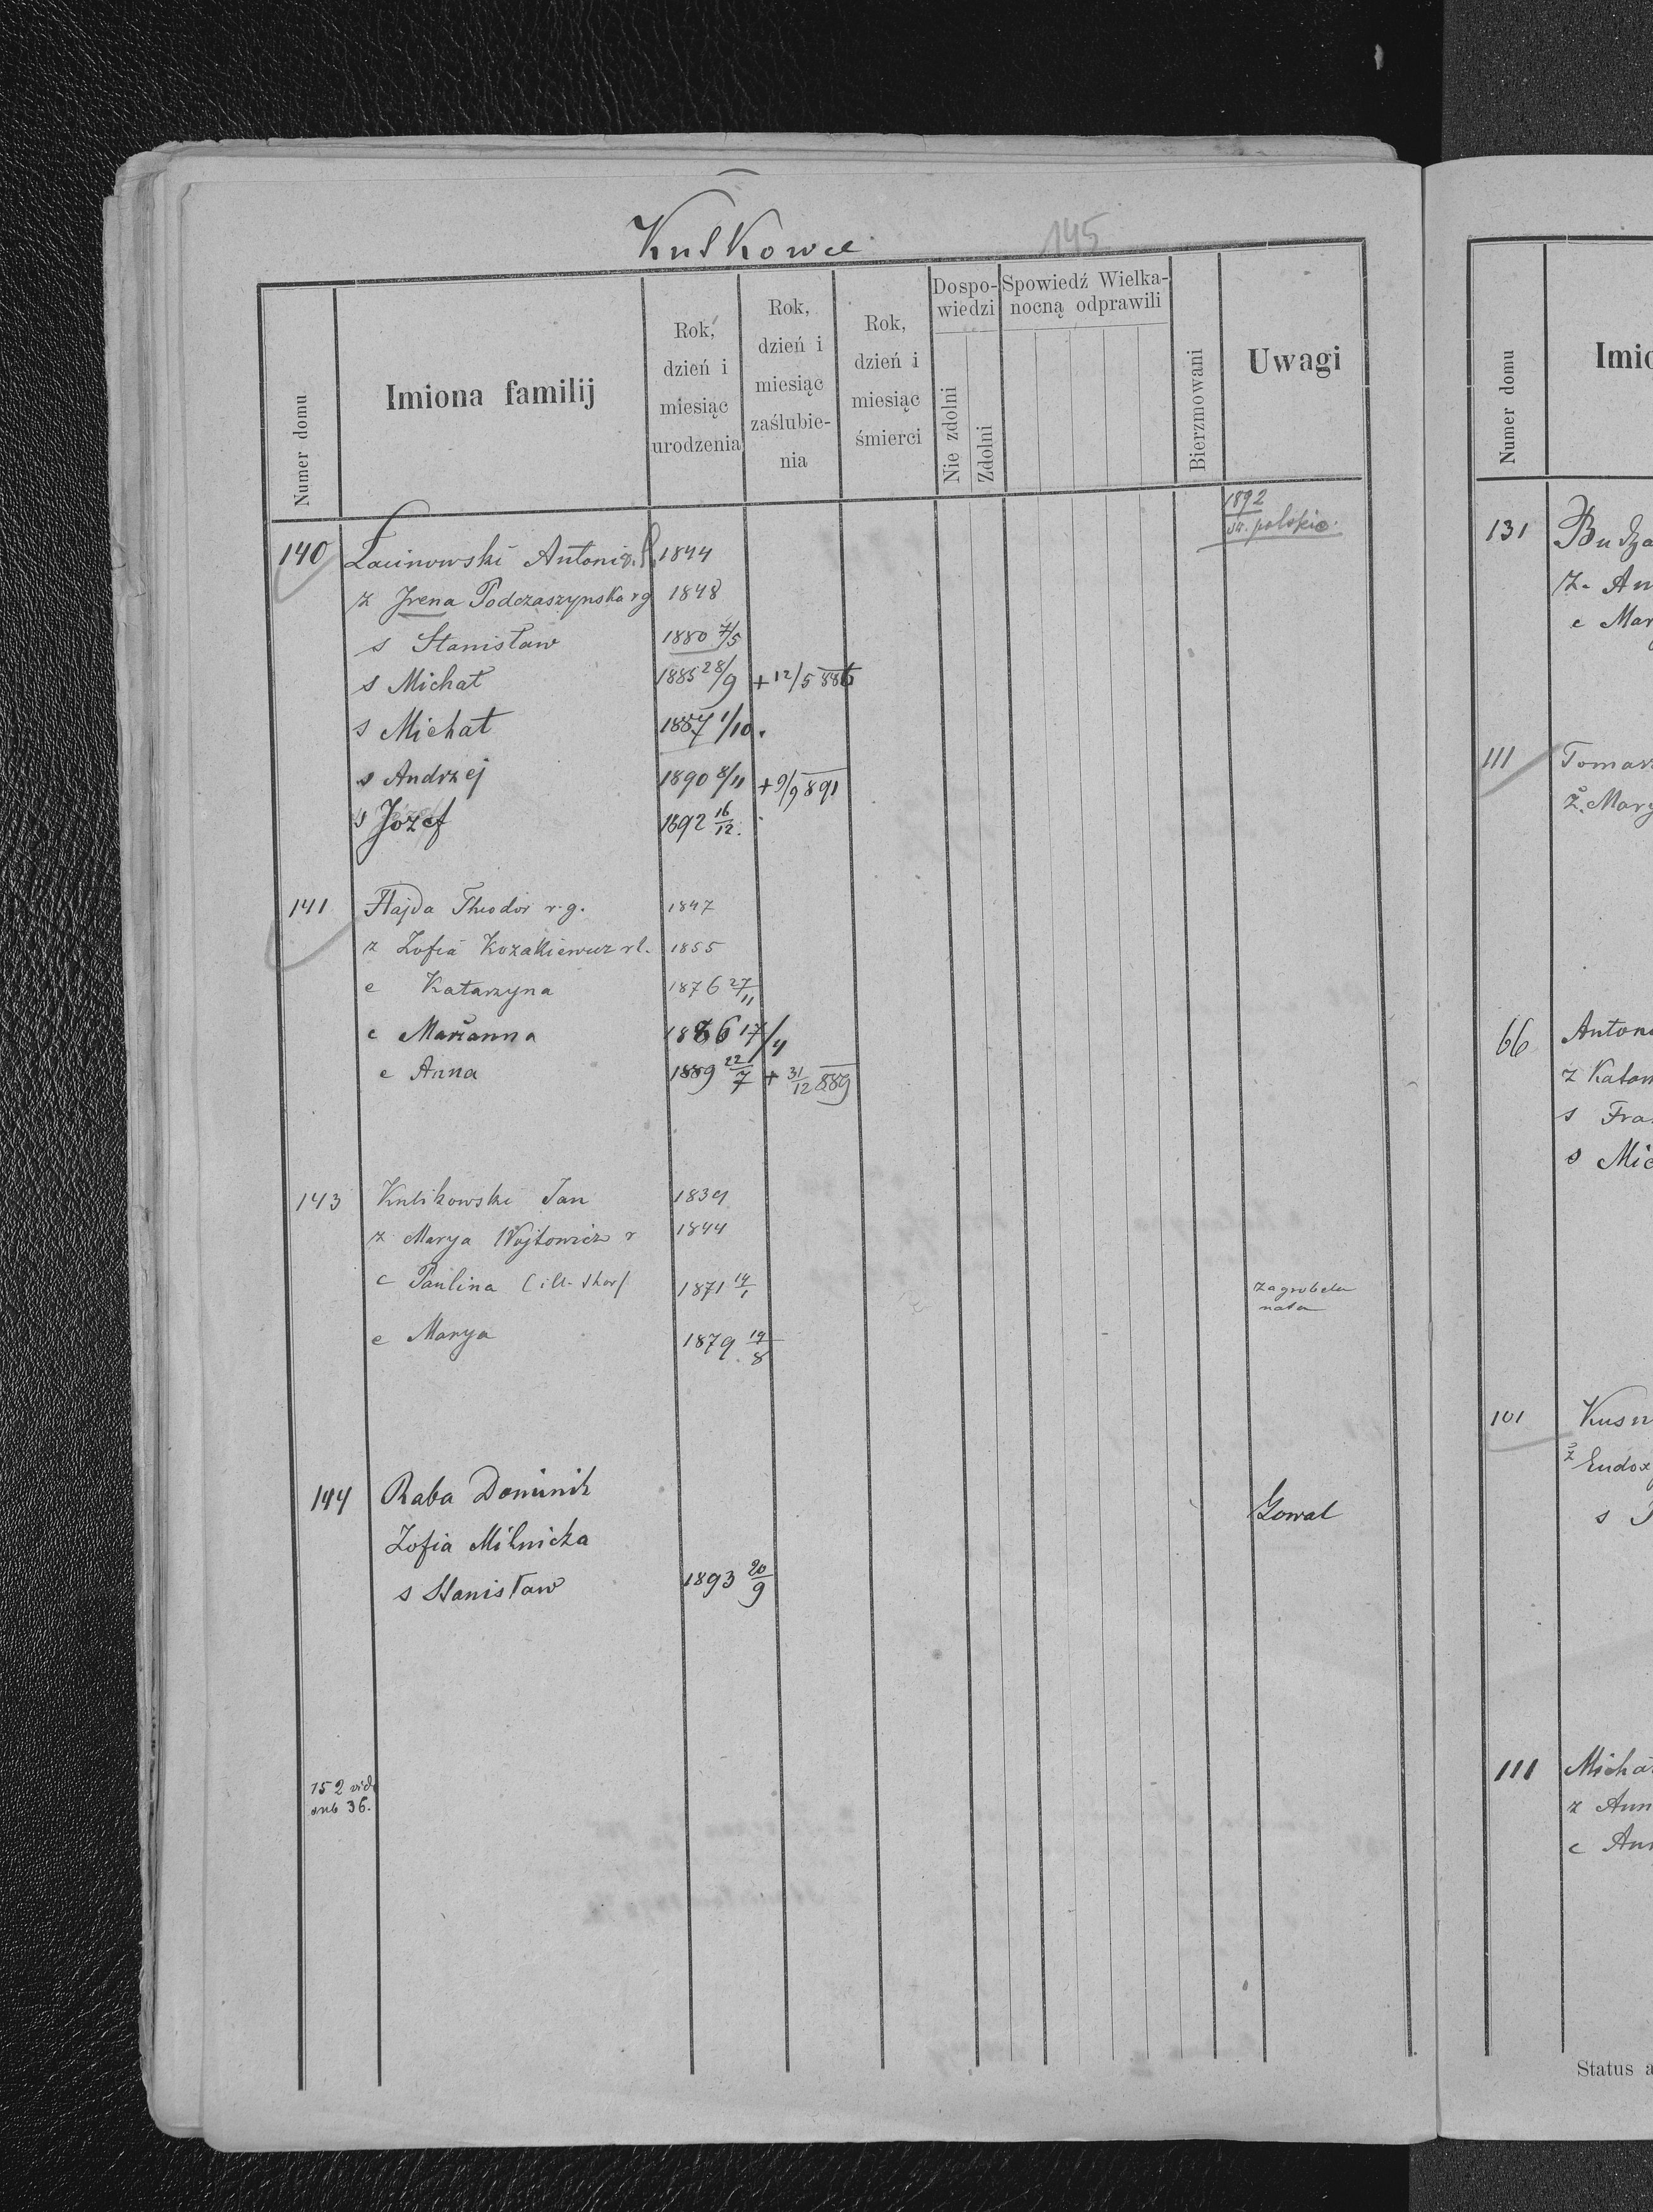 Kutkowce
145
Numer domu
Imiona familij
Rok, dzień i miesiąc urodzenia
Rok, dzień i miesiąc zaślubienia
Rok, dzień i miesiąc śmierci
Dospowiedzi
Nie zdolni
Zdolni
Spowiedź Wielkanocną odprawili
Bierzmowani
Uwagi
1892
polskie.
140 Antoni 1844
ż Irena Podczaszynska rg 1848
s Stanisław 1880 7/5
s Michał 1885 28/9 + 12/5 886
s Michał 1887 1/10.
s Andrzej 1890 8/11 + 9/9 891
s Józef 1892 16/12.
141 Hajda Theodor r.g. 1847
z Zofia Kozakiewicz rl. 1855
c Katarzyna 1876 27/11
c Marianna 1886 17/4
c Anna 1889 22/7 + 31/12 889
143 Kulikowski Jan 1839
ż Marya Wojtowicz r 1844
c Paulina 1871 14/1 zagrobela
nata
c Marya 1879 19/8
144 Raba Dominik Kowal
Zofia Milnicka
s Stanisław 1893 20/9
152 vide
sub 36.
Numer domu
Imio
131 Budza
ż. An
c Mar
111 Tomas
Ż. Mary
66 Anton
ż Katar
s Fra
s Mic
101 Kusn
ż Eudox
s
111 Micha
ż Ann
c Ann
Status a